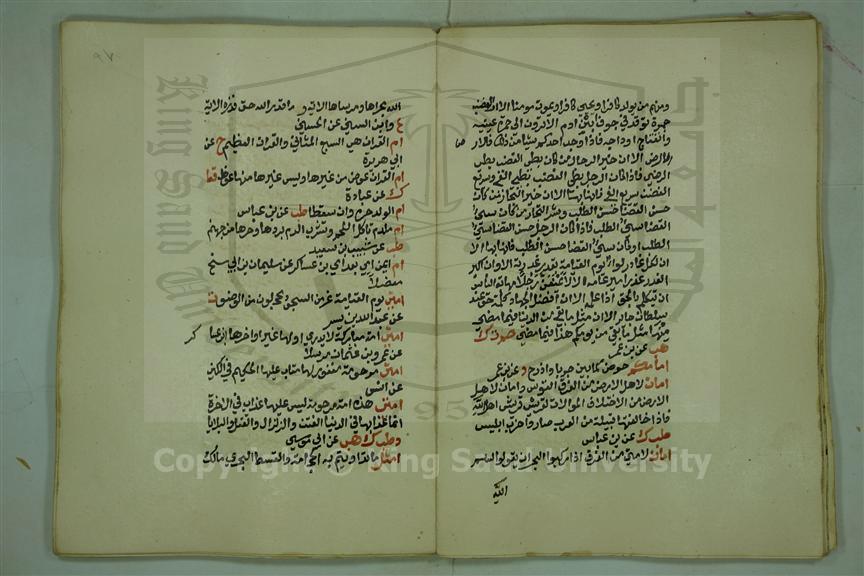 ومنهم من يولد كافرا ويحيى كافرا ويموت مؤمنا الا ان الغضب
جمرة توقد في جوف ابن ادم الا ترون الى حمرة عينيه
وانتفاخ اوداجه فاذا وجد احدكم شيئا من ذلك فالارض
الارض الا ان خير الرجال من كان بطئ الغضب بطى
الرضى فاذا كان الرجل بطى الغضب بطى الفئ وسريع
الغضب سريع الفئ فانها بها الا ان خير التجار من كان
حسن القضا حسن الطلب وشر التجار من كان سىئ
القضا سىئ الطلب فاذا كان الرجل حسن القضا سىئ
الطلب او كان سىئ القضا حسن الطلب فانها بها الا
ان لكل غادر لواء يوم القيامة بقدر غدرته الا وان اكبر
الغدر غدر امير عامة الا لا يمنعن رجلا مهابة الناس
ان يتكلم بالحق اذا علمه الا ان افضل الجهاد كلمة حق عند
سلطان جائر الا ان مثل ما بقى من الدنيا فيما مضى
منها مثل ما بقى من يومكم هذا فيما مضى حم ت ك
هب عن
امامكم حوض كما بين جربا واذرح د عن بن عمر
امان لاهل الارض من الغرق القوس وامان لاهل
الارض من الاختلاف الموالات لقريش قريش اهل الله
فاذا خالفتها قبيلة من العرب صاروا حزب ابليس
طب ك عن بن عباس
امان لامتي من الغرق اذا ركبوا البحر ان يقولوا بسم
الله
٩٧
الله مجراها ومرساها الاية وما قدروا الله حق قدره الاية
ع وابن السنى عن الحسين
ام القران هي السبع المثاني والقران العظيم خ عن
ابي هريرة
ام القران عوض من غيرها وليس غيرها منها عوض قط
ك عن عبادة
ام الولد حرة وان كان سقطا طب عن بن عباس
ام ملدم تاكل اللحم وتشرب الدم بردها وحرها من جهنم
طب عن شبيب بن سعد
ام ايمن امي بعد امي بن عساكر عن سليمان بن ابي شيخ
معضلا
امتي يوم القيامة غر من السجود محجلون من الوضوء ت
عن عبد الله بن بسر
امتي امة مباركة لا يدرى اولها خير او اخرها ابن عساكر
عن عمرو بن عثمان مرسلا
امتي مرحومة مغفور لها متاب عليها الحكيم في الكنى
عن انس
امتي هذه امة مرحومة ليس عليها عذاب في الاخرة
انما عذابها في الدنيا الفتن والزلازل والقتل والبلايا
د طب ك هب عن ابي موسى
امثل ما تداويتم به الحجامة والقسط البحري مالك
Copyright © King Saud University
King Saud University
1957